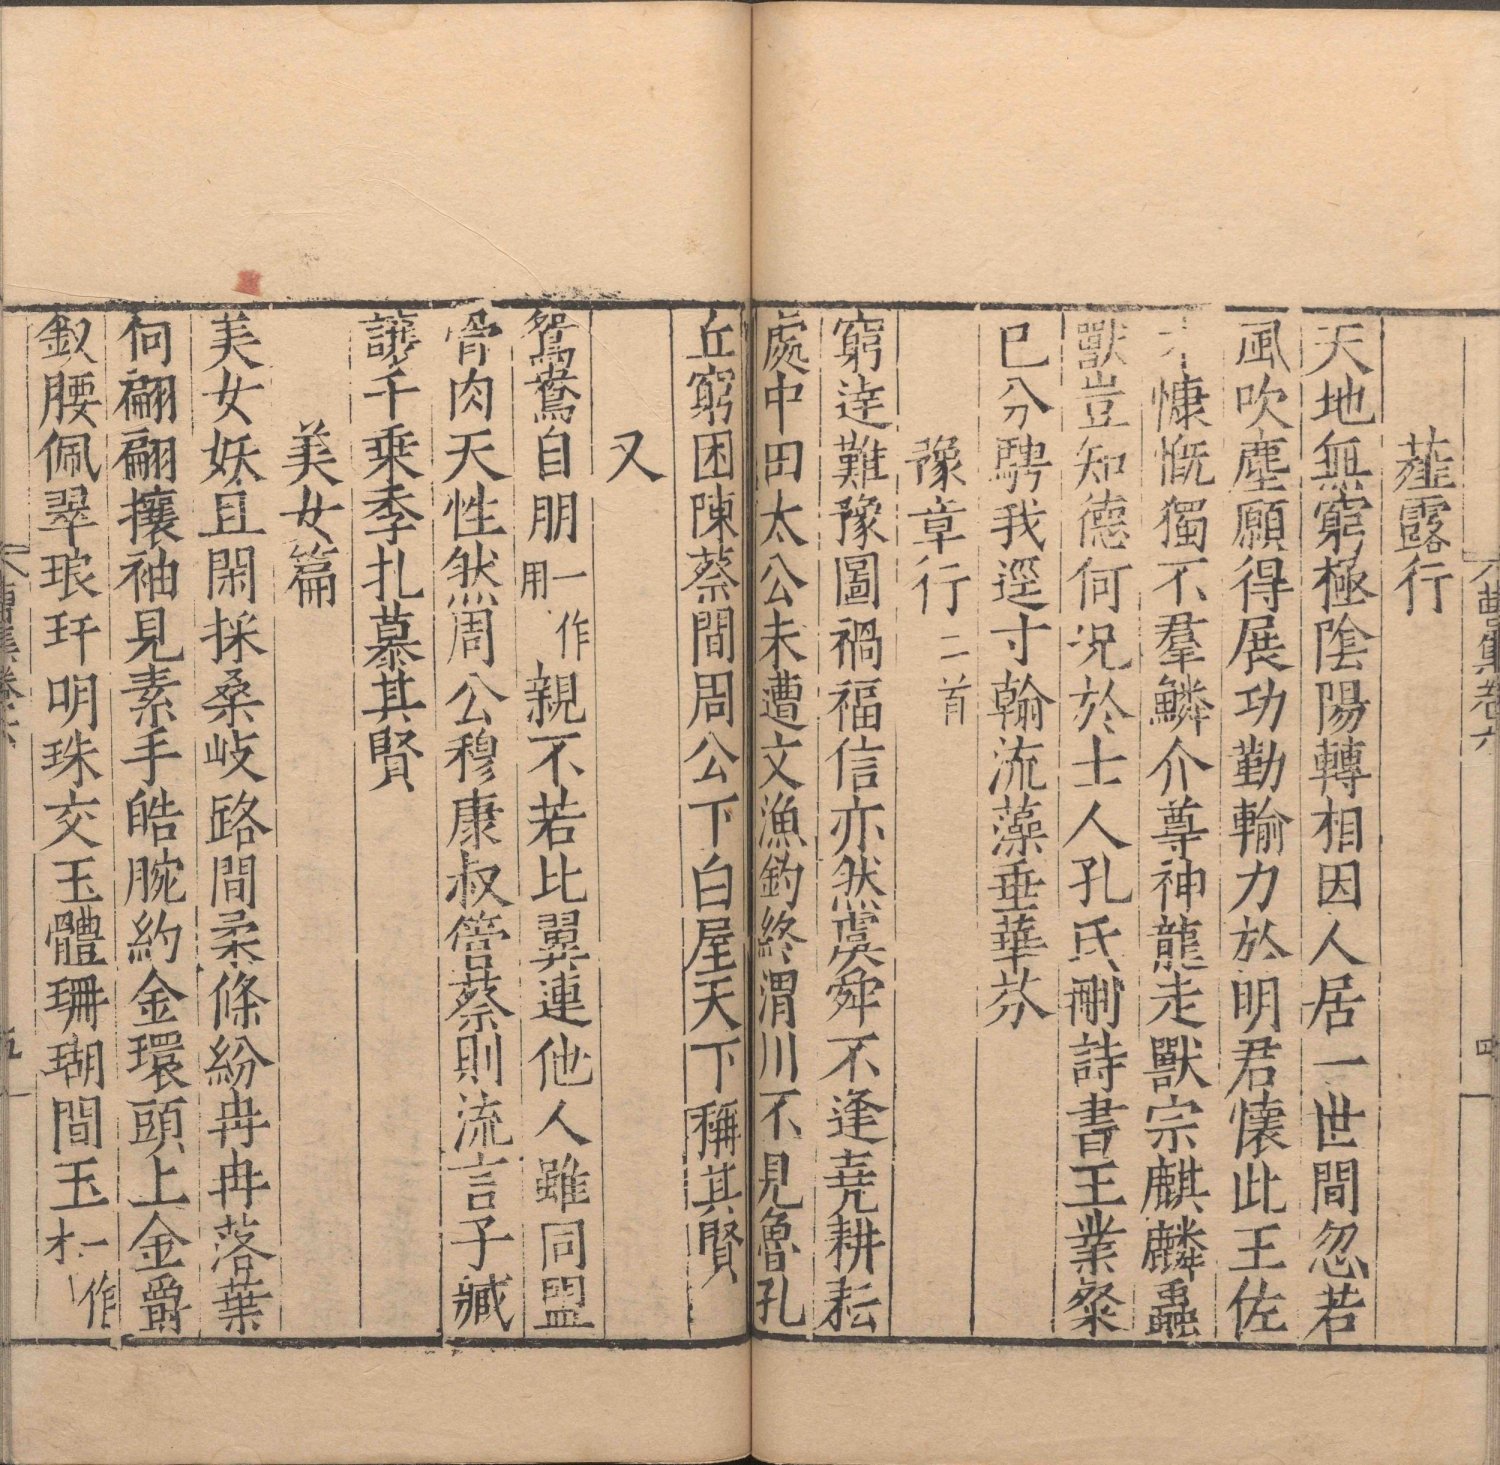 薤露行
天地無窮極陰陽轉相因人居一世間忽若
風吹塵願得展功勤輸力於明君懷此王佐
才慷慨獨不羣鱗介尊神龍走獸宗麒麟蟲
獸豈知德何況於士人孔氏刪詩書王業粲
已分騁我逕寸翰流藻垂華芬
豫章行二首
窮達難豫圖禍福信亦然虞舜不逢堯耕耘
處中田太公未遭文漁釣終渭川不見魯孔
丘窮困陳蔡間周公下白屋天下稱其賢
又
鴛鴦自朋一作用親不若比翼連他人雖同盟
骨肉天性然周公穆康叔管蔡則流言子臧
讓千乗季札慕其賢
美女篇
美女妖且閑採桑岐路間柔條紛冉冉落葉
何翩翩攘袖見素手皓腕約金環頭上金爵
釵腰佩翠琅玕明珠交玉體珊瑚間玉一作木
曹集卷六
四
五